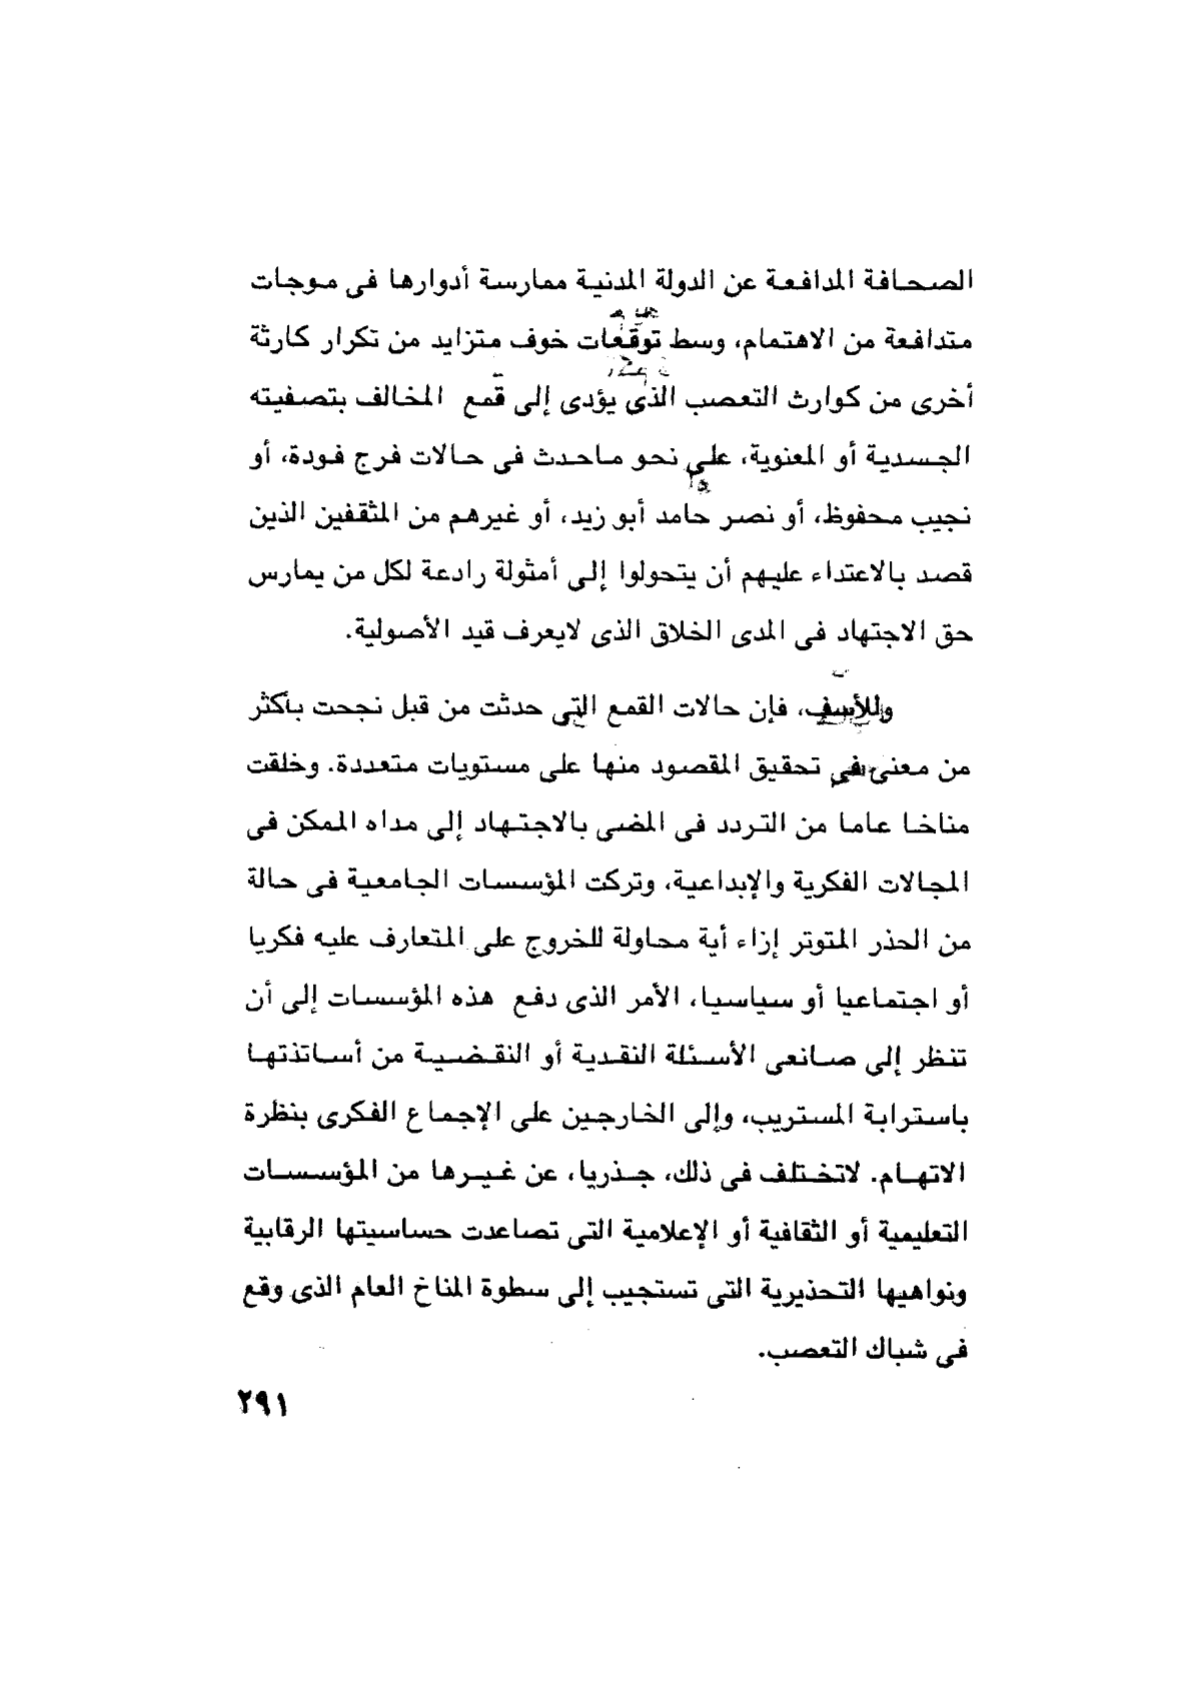 الصحافة المدافعة عن الدولة المدنية ممارسة أدوارها فى موجات
متدافعة من الاهتمام، وسط توقعات خوف متزايد من تكرار كارثة
أخرى من كوارث التعصب الذى يؤدى إلى قمع المخالف بتصفيته
الجسدية أو المعنوية، على نحو ماحدث فى حالات فرج فودة، أو
نجيب محفوظ، أو نصر حامد أبو زيد، أو غيرهم من المثقفين الذين
قصد بالاعتداء عليهم أن يتحولوا إلى أمثولة رادعة لكل من يمارس
حق الاجتهاد فى المدى الخلاق الذى لايعرف قيد الأصولية.
وللأسف، فإن حالات القمع التى حدثت من قبل نجحت بأكثر
من معنى فى تحقيق المقصود منها على مستويات متعددة. وخلقت
مناخا عاما من التردد فى المضى بالاجتهاد إلى مداه الممكن فى
المجالات الفكرية والإبداعية، وتركت المؤسسات الجامعية فى حالة
من الحذر المتوتر إزاء أية محاولة للخروج على المتعارف عليه فكريا
أو اجتماعيا أو سياسيا، الأمر الذى دفع هذه المؤسسات إلى أن
تنظر إلى صانعى الأسئلة النقدية أو النقضية من أساتذتها
باسترابة المستريب، وإلى الخارجين على الإجماع الفكرى بنظرة
الاتهام. لاتختلف فى ذلك، جذريا، عن غيرها من المؤسسات
التعليمية أو الثقافية أو الإعلامية التى تصاعدت حساسيتها الرقابية
ونواهيها التحذيرية التى تستجيب إلى سطوة المناخ العام الذى وقع
فى شباك التعصب.
٢٩١